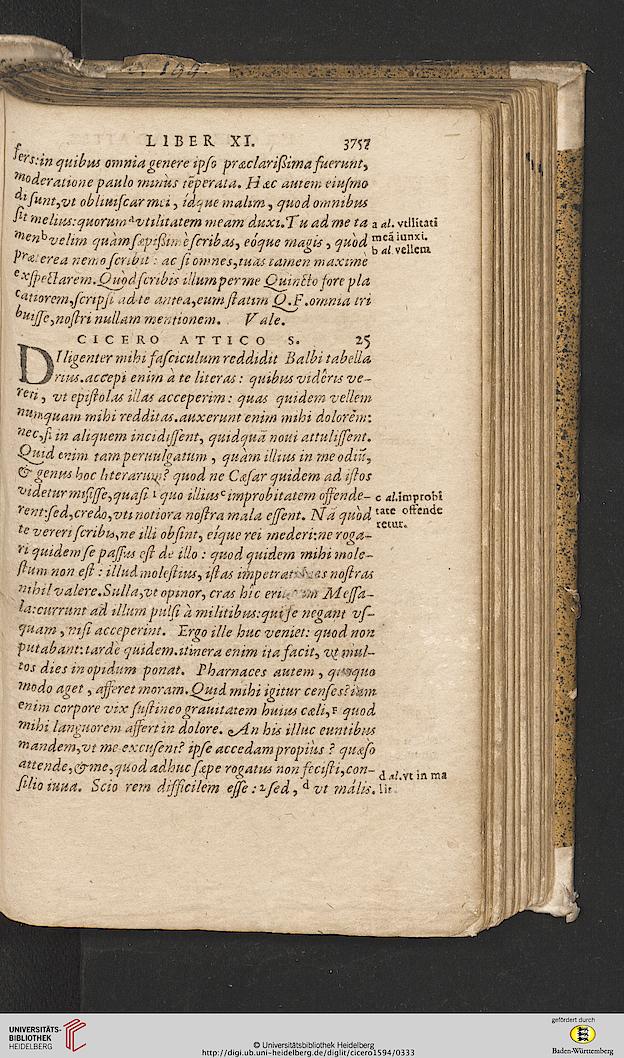 199.
LIBER XI. 375
fers: in quibus omnia genere ipso præclarißima fuerunt,
moderatione paulo minùs tẽperata. Hæc autem eiusmo
di sunt, vt obliuiscar mei, idque malim, quod omnibus
sit melius: quorum ᵃ vtilitatem meam duxi. Tu ad me ta
men ᵇ velim quàm sæpißimè scribas, eóque magis, quòd
præterea nemo scribit: ac si omnes, tuas tamen maximè
exspectarem. Quòd scribis illum per me Quincto fore pla
catiorem, scripsi ad te antea, eum statim Q. F. omnia tri
buisse, nostri nullam mentionem. Vale.
a al. vtilitati
meã iunxi.
b al. vellem
CICERO ATTICO S. 25
DIligenter mihi fasciculum reddidit Balbi tabella
rius. accepi enim à te literas: quibus vidêris ve-
reri, vt epistolas illas acceperim: quas quidem vellem
numquam mihi redditas. auxerunt enim mihi dolorẽm:
nec, si in aliquem incidissent, quidquã noui attulissent.
Quid enim tam peruulgatum, quàm illius in me odiũ,
& genus hoc literarum? quod ne Cæsar quidem ad istos
videtur misisse, quasi quo illius ᶜ improbitatem offende-
rent: sed, credo, vti notiora nostra mala essent. Nã quòd
te vereri scribis, ne illi obsint, eique rei mederi: ne roga-
ri quidem se passus est de illo: quod quidem mihi mole-
stum non est: illud molestius, istas nostras
nihil valere. Sulla, vt opinor, cras hîc Messa-
la: currunt ad illum pulsi à militibus: qui se negant vs-
quam, nisi acceperint. Ergo ille huc veniet: quod non
putabant: tarde quidem. itinera enim ita facit, vt mul-
tos dies in opidum ponat. Pharnaces autem, quoquo
modo aget, afferet moram. Quid mihi igitur censes? iam
enim corpore vix sustineo grauitatem huius cæli, quod
mihi languorem affert in dolore. An his illuc euntibus
mandem, vt me excusent? ipse accedam propiùs? quæso
attende, & me, quod adhuc sæpe rogatus non fecisti, con-
silio iuua. Scio rem difficilem esse: sed, ᵈ vt in malis.
c al. improbi
tate offende
retur.
d al. vt in ma
lis
UNIVERSITÄTS-
BIBLIOTHEK
HEIDELBERG
© Universitätsbibliothek Heidelberg
http://digi.ub.uni-heidelberg.de/diglit/cicero1594/0333
gefördert durch
Baden-Württemberg